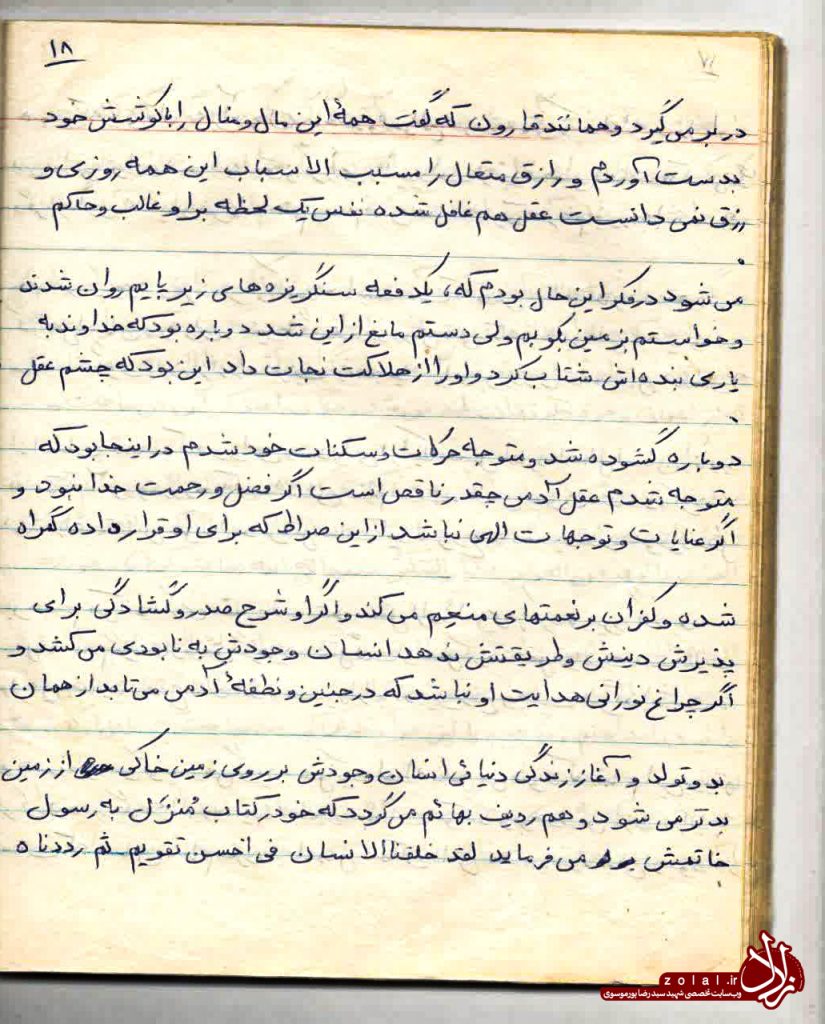 ۱۸
در بر می‌گیرد و همانند قارون که گفت همهٔ این مال و منال را با کوشش خود
بدست آوردم و رازق متعال را مسبب الاسباب این همه روزی و
رزق نمی دانست عقل هم غافل شده نفس یک لحظه بر او غالب و حاکم
می شود در فکر این حال بودم که، یکدفعه سنگریزه های زیر پایم روان شدند
و خواستم بزمین بکوبم ولی دستم مانع از این شد دوباره بود که خداوند به
یاری بنده اش شتاب کرد و او را از هلاکت نجات داد این بود که چشم عقل
دوباره گشوده شد و متوجه حرکات و سکنات خود شدم در اینجا بود که
متوجه شدم عقل آدمی چقدر ناقص است اگر فضل و رحمت خدا نبود و
اگر عنایات و توجهات الهی نباشد از این صراط که برای او قرار داده گمراه
شده و کفران بر نعمتهای منعم می کند و اگر او شرح صدر و گشادگی برای
پذیرش دینش و طریقتش ندهد انسان وجودش به نابودی می کشد و
اگر چراغ نورانی هدایت او نباشد که در جنین و نطفهٔ آدمی می تابد از همان
بدو تولد و آغاز زندگی دنیائی انسان وجودش بر روی زمین خاکی از زمین
بدتر می شود و هم ردیف بهائم می گردد که خود در کتاب مُنزَل به رسول
خاتمش می فرماید لقد خلقنا الانسان فی احسن تقویم ثم رددناه
زلال
zolal.ir
وب‌سایت تخصصی شهید سید رضا پورموسوی